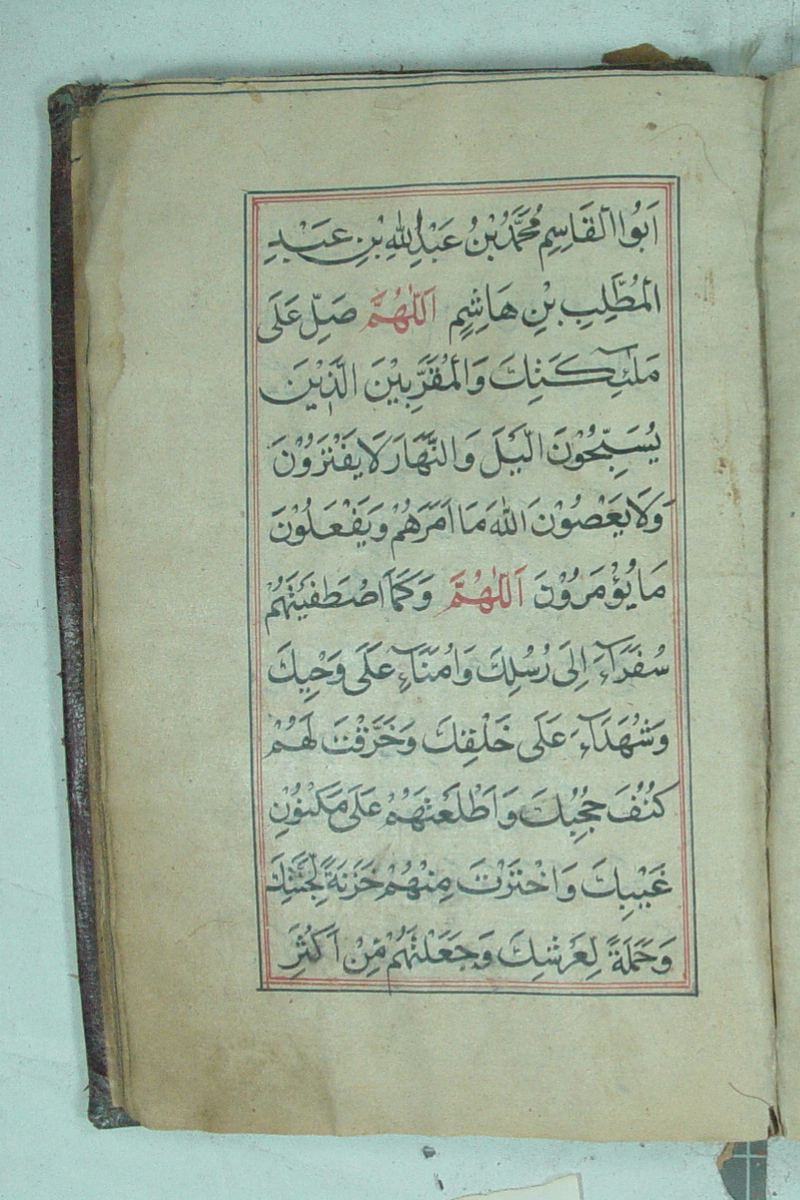 اَبُوا الْقَاسِمِ مُحَمَّدُ بْنُ عَبْدِ اللهِ بْنِ عَبْدِ
الْمُطَّلِبِ بْنِ هَاشِمٍ اَللّٰهُمَّ صَلِّ عَلَى
مَلٰٓئِكَتِكَ وَالْمُقَرَّبِيْنَ الَّذِيْنَ
يُسَبِّحُوْنَ الَّيْلَ وَالنَّهَارَ لَا يَفْتَرُوْنَ
وَلَا يَعْصُوْنَ اللهَ مَا اَمَرَهُمْ وَيَفْعَلُوْنَ
مَا يُؤْمَرُوْنَ اَللّٰهُمَّ وَكَمَا اصْطَفَيْتَهُمْ
سُفَرَآءَ اِلَى رُسُلِكَ وَاُمَنَآءِ عَلَى وَحْيِكَ
وَشُهَدَآءَ عَلَى خَلْقِكَ وَخَرَقْتَ لَهُمْ
كُنُفَ حُجُبِكَ وَاَطْلَعْتَهُمْ عَلَى مَكْنُوْنِ
غَيْبِكَ وَاخْتَرْتَ مِنْهُمْ خَزَنَةً لِجَنَّتِكَ
وَحَمَلَةً لِعَرْشِكَ وَجَعَلْتَهُمْ مِّنْ اَكْثَرِ